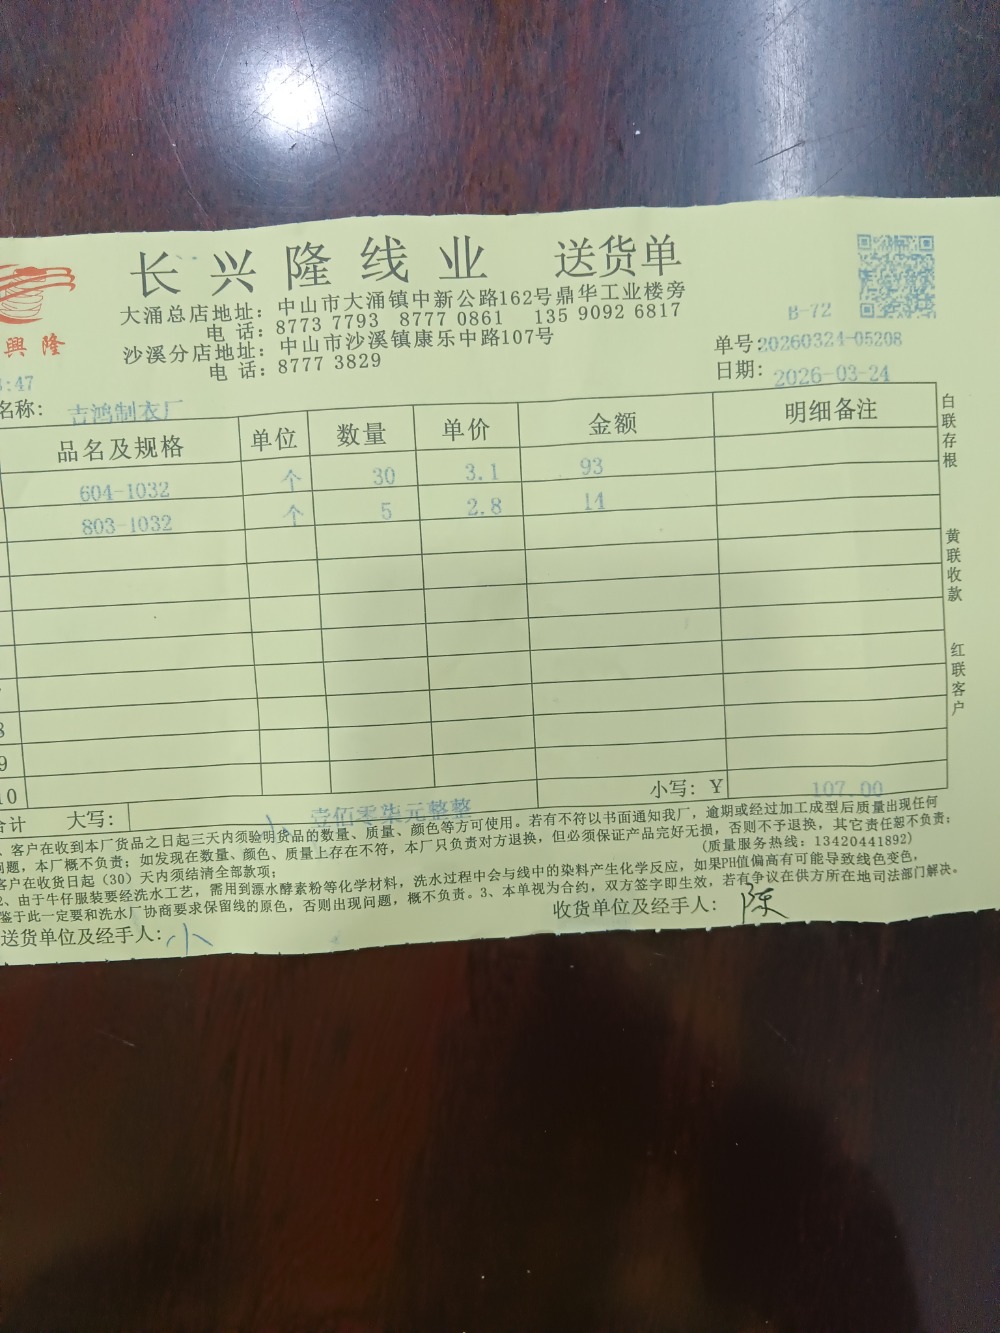 长兴隆线业 送货单
興隆
大涌总店地址：中山市大涌镇中新公路162号鼎华工业楼旁
电话：8773 7793 8777 0861 135 9092 6817
沙溪分店地址：中山市沙溪镇康乐中路107号
电话：8777 3829
B-72
单号：20260324-05208
日期：2026-03-24
:47
名称：吉鸿制衣厂
品名及规格 单位 数量 单价 金额 明细备注
604-1032 个 30 3.1 93
803-1032 个 5 2.8 14
8
9
10
合计 大写：壹佰零柒元整整 小写：Y 107.00
白联存根
黄联收款
红联客户
、客户在收到本厂货品之日起三天内须验明货品的数量、质量、颜色等方可使用。若有不符以书面通知我厂，逾期或经过加工成型后质量出现任何
问题，本厂概不负责；如发现在数量、颜色、质量上存在不符，本厂只负责对方退换，但必须保证产品完好无损，否则不予退换，其它责任恕不负责；
客户在收货日起（30）天内须结清全部款项； (质量服务热线：13420441892)
2、由于牛仔服装要经洗水工艺，需用到漂水酵素粉等化学材料，洗水过程中会与线中的染料产生化学反应，如果PH值偏高有可能导致线色变色，
鉴于此一定要和洗水厂协商要求保留线的原色，否则出现问题，概不负责。3、本单视为合约，双方签字即生效，若有争议在供方所在地司法部门解决。
送货单位及经手人：小 收货单位及经手人：陈